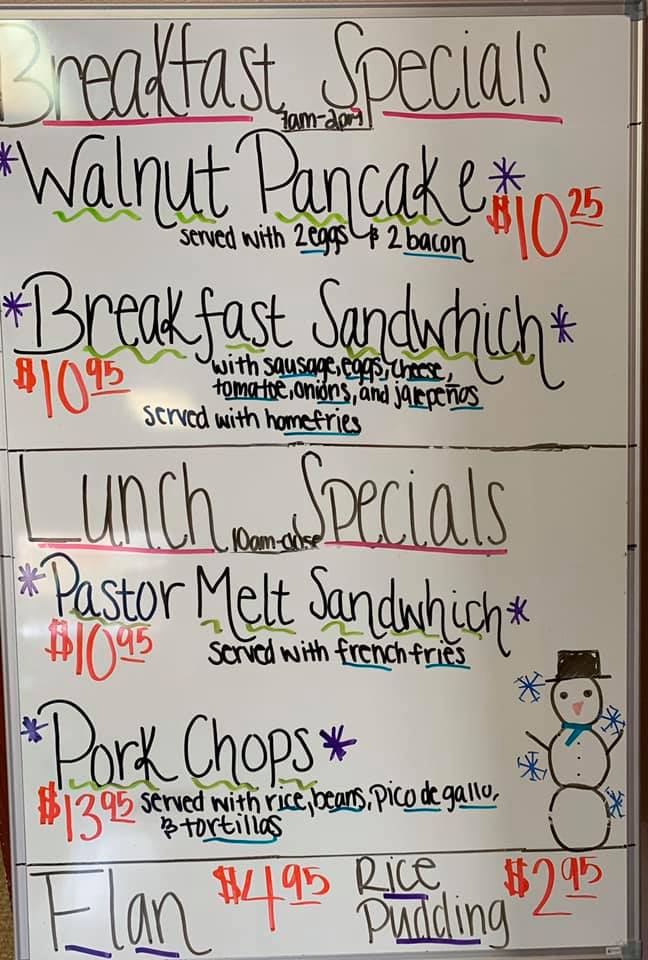 Breakfast Specials
7am-2pm
*Walnut Pancake* $10.25
served with 2 eggs & 2 bacon
*Breakfast Sandwhich*
$10.95 with sausage, eggs, cheese,
tomatoe, onions, and jalepeños
served with homefries
Lunch Specials
10am-close
*Pastor Melt Sandwhich*
$10.95 served with french fries
*Pork Chops*
$13.95 served with rice, beans, pico de gallo,
& tortillas
Flan $4.95 Rice Pudding $2.95